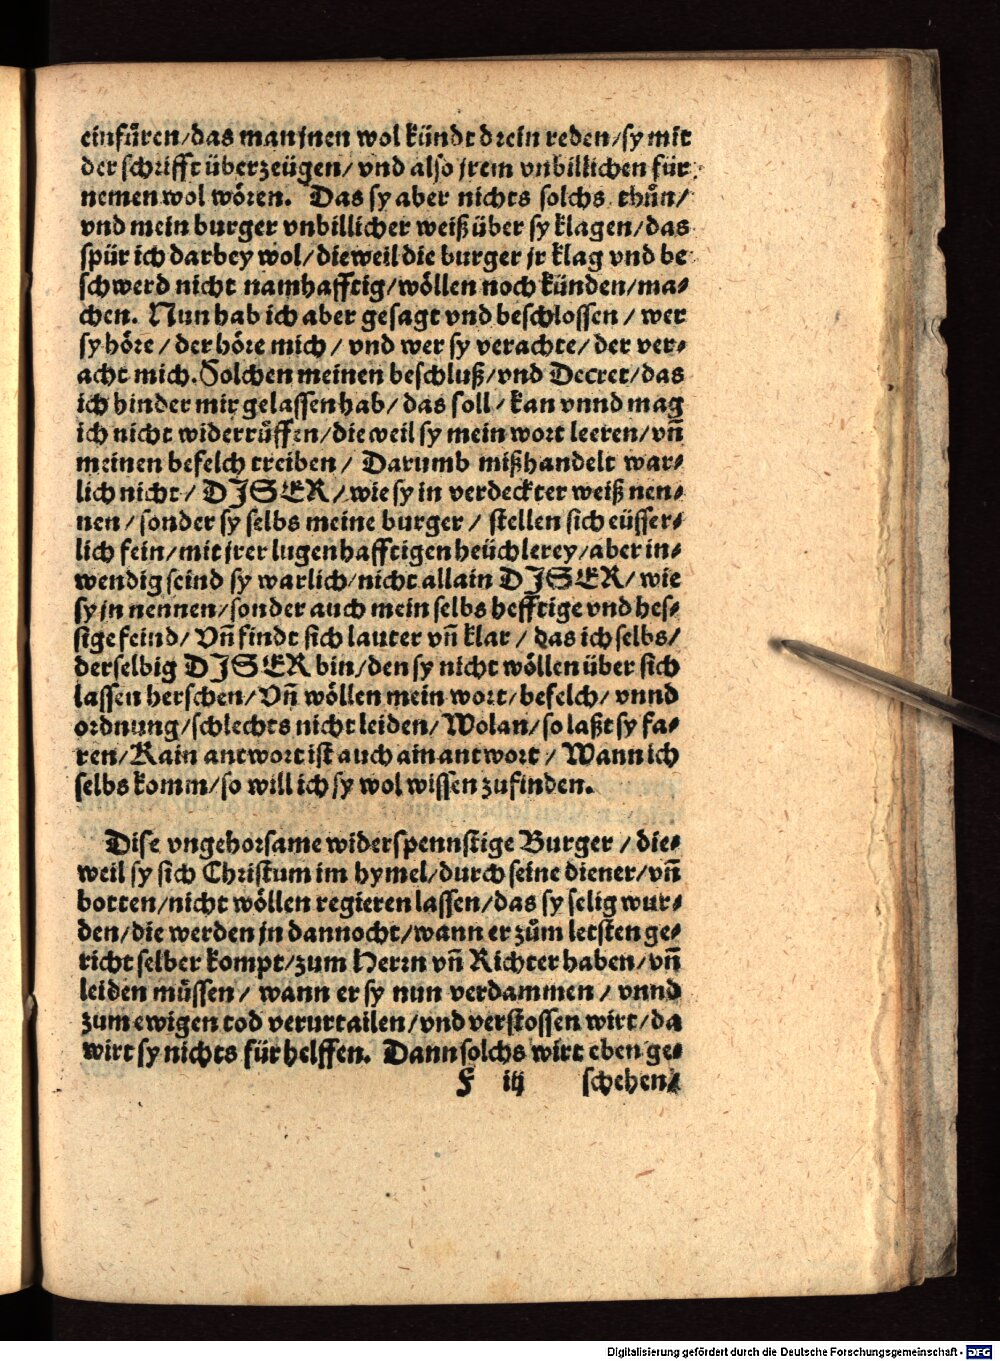 einfuͤren/das man jnen wol kündt drein reden/sy mit
der schrifft überzeügen/ vnd also jrem vnbillichen für
nemen wol wören. Das sy aber nichts solchs thuͦn/
vnd mein burger vnbillicher weiß über sy klagen/das
spür ich darbey wol/dieweil die burger jr klag vnd be
schwerd nicht namhafftig/wöllen noch künden/ma⸗
chen. Nun hab ich aber gesagt vnd beschlossen / wer
sy höre / der höre mich / vnd wer sy verachte/ der ver⸗
acht mich. Solchen meinen beschluß/vnd Decret/das
ich hinder mir gelassen hab/ das soll / kan vnnd mag
ich nicht widerruͤffen/dieweil sy mein wort leeren/vñ
meinen befelch treiben / Darumb mißhandelt war⸗
lich nicht / DJSER / wie sy in verdeckter weiß nen⸗
nen / sonder sy selbs meine burger / stellen sich eüsser⸗
lich fein/mit jrer lugenhafftigen heüchlerey/aber in⸗
wendig seind sy warlich/nicht allain DJSER/ wie
sy jn nennen/sonder auch mein selbs hefftige vnd hes⸗
sige feind/ Vñ findt sich lauter vñ klar / das ich selbs/
derselbig DJSER bin/den sy nicht wöllen über sich
lassen herschen/ Vñ wöllen mein wort/ befelch/ vnnd
ordnung/schlechts nicht leiden/ Wolan/so laßt sy fa⸗
ren/Kain antwort ist auch ain antwort / Wann ich
selbs komm/so will ich sy wol wissen zufinden.
Dise vngehorsame widerspennstige Burger / die⸗
weil sy sich Christum im hymel/durch seine diener/vñ
botten/nicht wöllen regieren lassen/das sy selig wur⸗
den/die werden jn dannocht/wann er zuͦm letsten ge⸗
richt selber kompt/zum Herrn vñ Richter haben/vñ
leiden müssen/ wann er sy nun verdammen / vnnd
zum ewigen tod verurtailen/vnd verstossen wirt/da
wirt sy nichts für helffen. Dann solchs wirt eben ge⸗
F iij schehen/
Digitalisierung gefördert durch die Deutsche Forschungsgemeinschaft - DFG